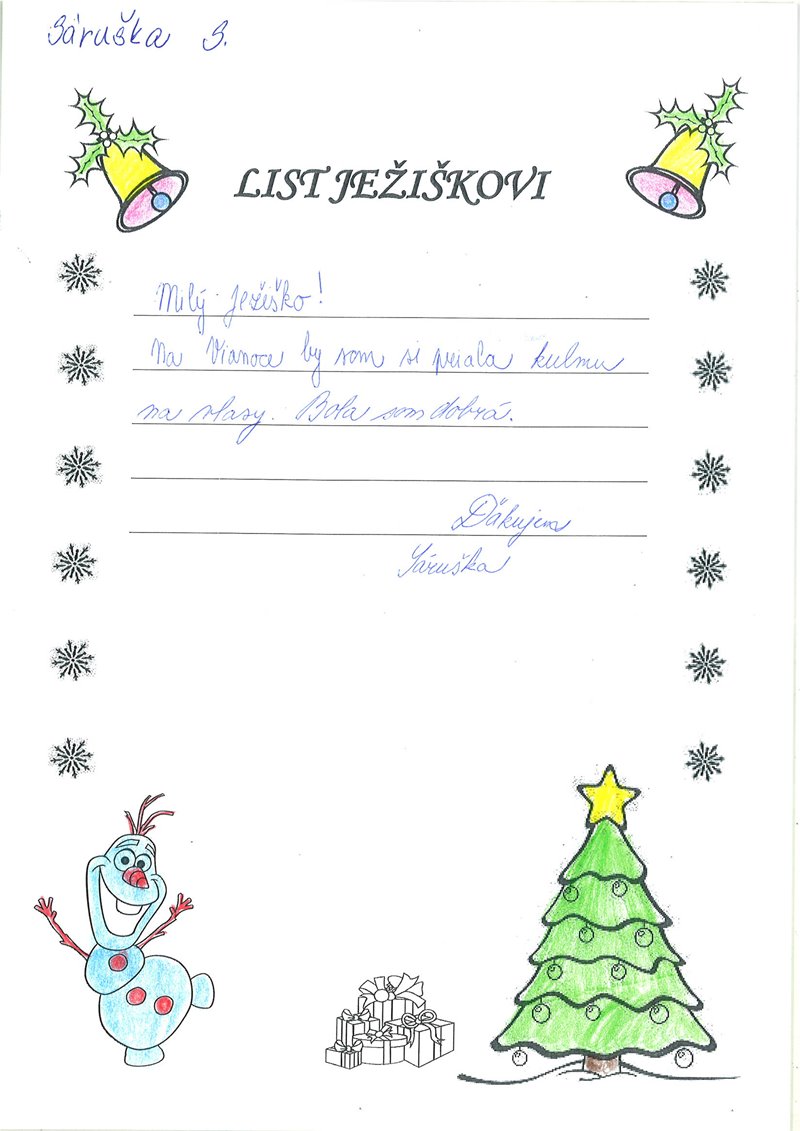 Sáruška S.
LIST JEŽIŠKOVI
Milý Ježiško!
Na Vianoce by som si priala kulmu
na vlasy. Bola som dobrá.
Ďakujem
Sáruška